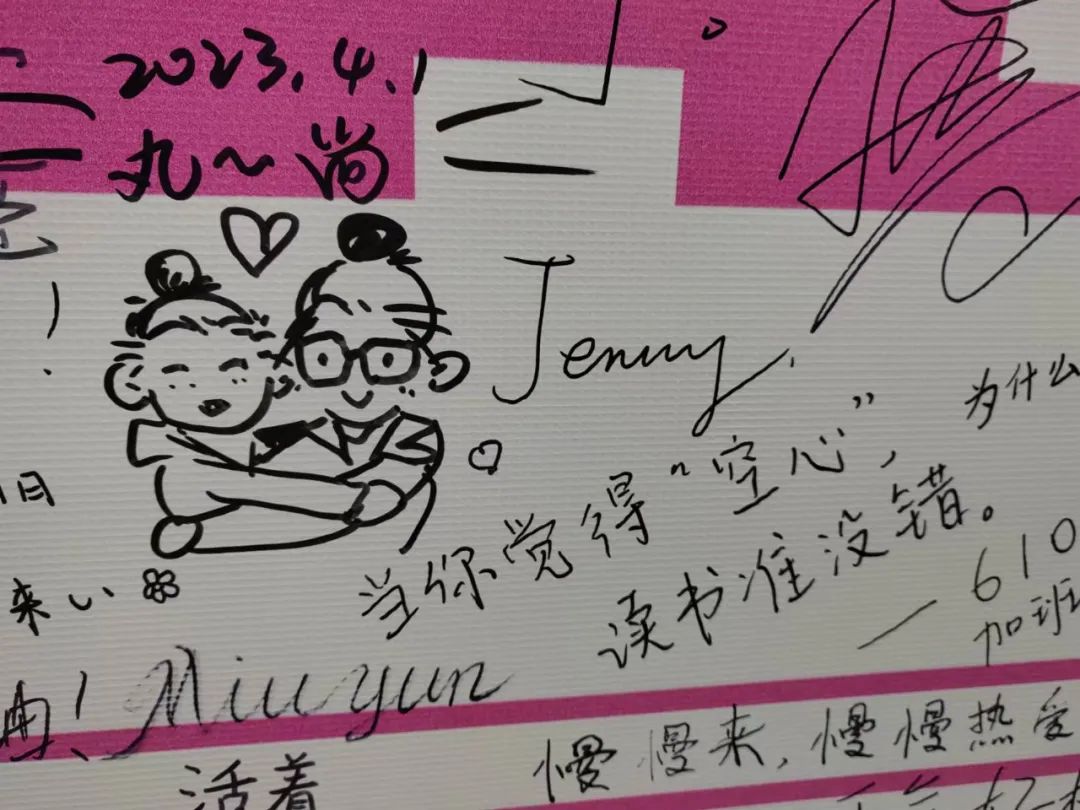 2023.4.1
丸～尚
Jenny.
为什么
当你觉得“空心”,
读书准没错。
—610
加班
来
Miuyun
慢慢来,慢慢热爱
活着